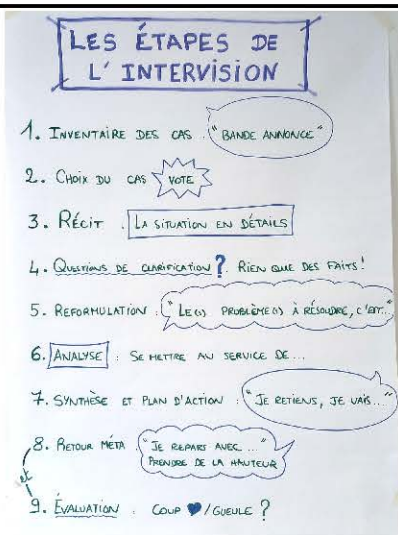 LES ÉTAPES DE
L'INTERVISION
1. INVENTAIRE DES CAS : "BANDE ANNONCE"
2. CHOIX DU CAS VOTE
3. RÉCIT : LA SITUATION EN DÉTAILS
4. QUESTIONS DE CLARIFICATION ? RIEN QUE DES FAITS !
5. REFORMULATION : "LE(S) PROBLÈME(S) À RÉSOUDRE, C'EST..."
6. ANALYSE : SE METTRE AU SERVICE DE...
7. SYNTHÈSE ET PLAN D'ACTION : "JE RETIENS, JE VAIS..."
8. RETOUR MÉTA "JE REPARS AVEC ..."
PRENDRE DE LA HAUTEUR
et
9. ÉVALUATION : COUP ♥/GUEULE ?